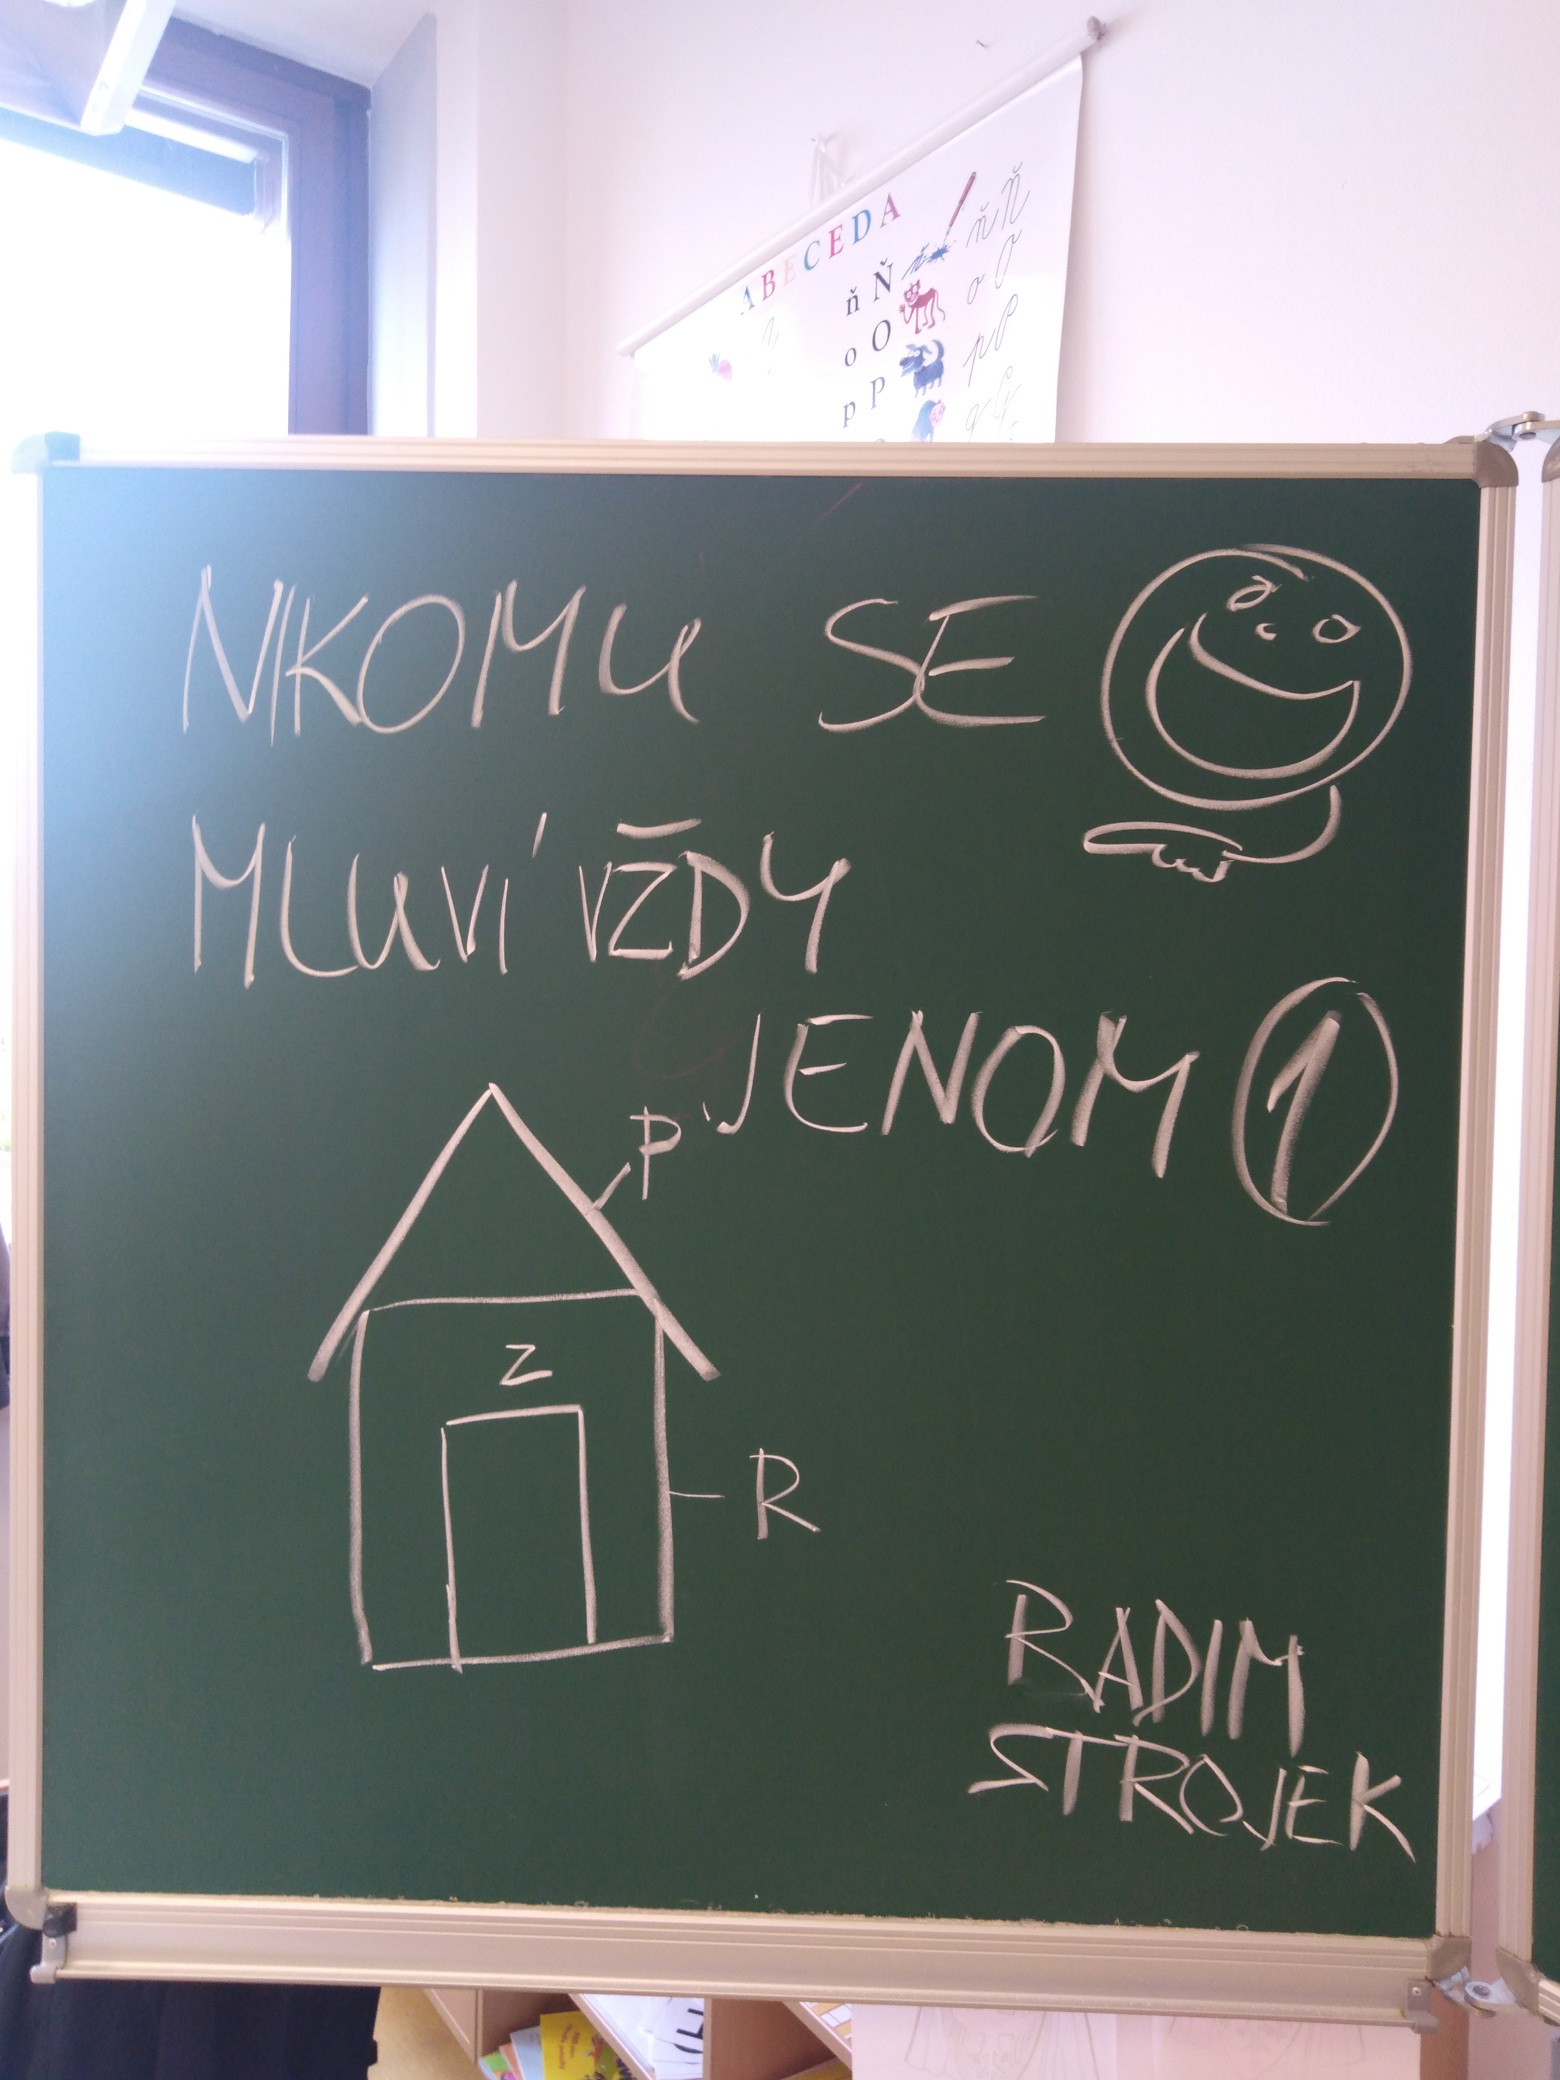 ABECEDA
ň Ň ň ň Ň
o O o O
p P p P
q Q
NIKOMU SE
MLUVÍ VŽDY
JENOM 1
P
Z
R
RADIM
STROJEK